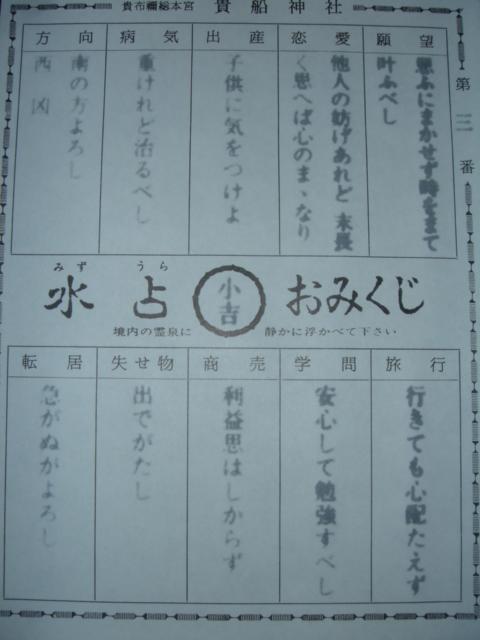 貴布禰総本宮 貴船神社
第三番
願望
思ふにまかせず時をまて
叶ふべし
恋愛
他人の妨げあれど 末長
く思へば心のまゝなり
出産
子供に気をつけよ
病気
重けれど治るべし
方向
南の方よろし
西 凶
みず うら
水占 小吉 おみくじ
境内の霊泉に 静かに浮かべて下さい
旅行
行きても心配たえず
学問
安心して勉強すべし
商売
利益思はしからず
失せ物
出でがたし
転居
急がぬがよろし